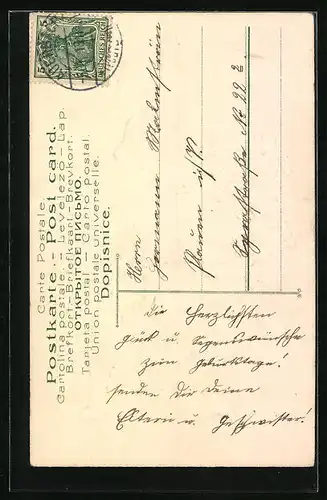 Carte Postale.
Postkarte. - Post card.
Cartolina postale. - Levelező-Lap.
Brefkort-Briefkaart-Brevkort.
ОТКРЫТОЕ ПИСЬМО.
Tarjeta postal - Carto postal.
Union postale universelle.
Dopisnice.
DEUTSCHES REICH
Herrn
Hermann
Plauen i/V.
No 22 II.
Die Herzlichsten
Glück u. Segenswünsche
zum Geburtstage!
senden Dir Deine
Eltern u. Geschwister!